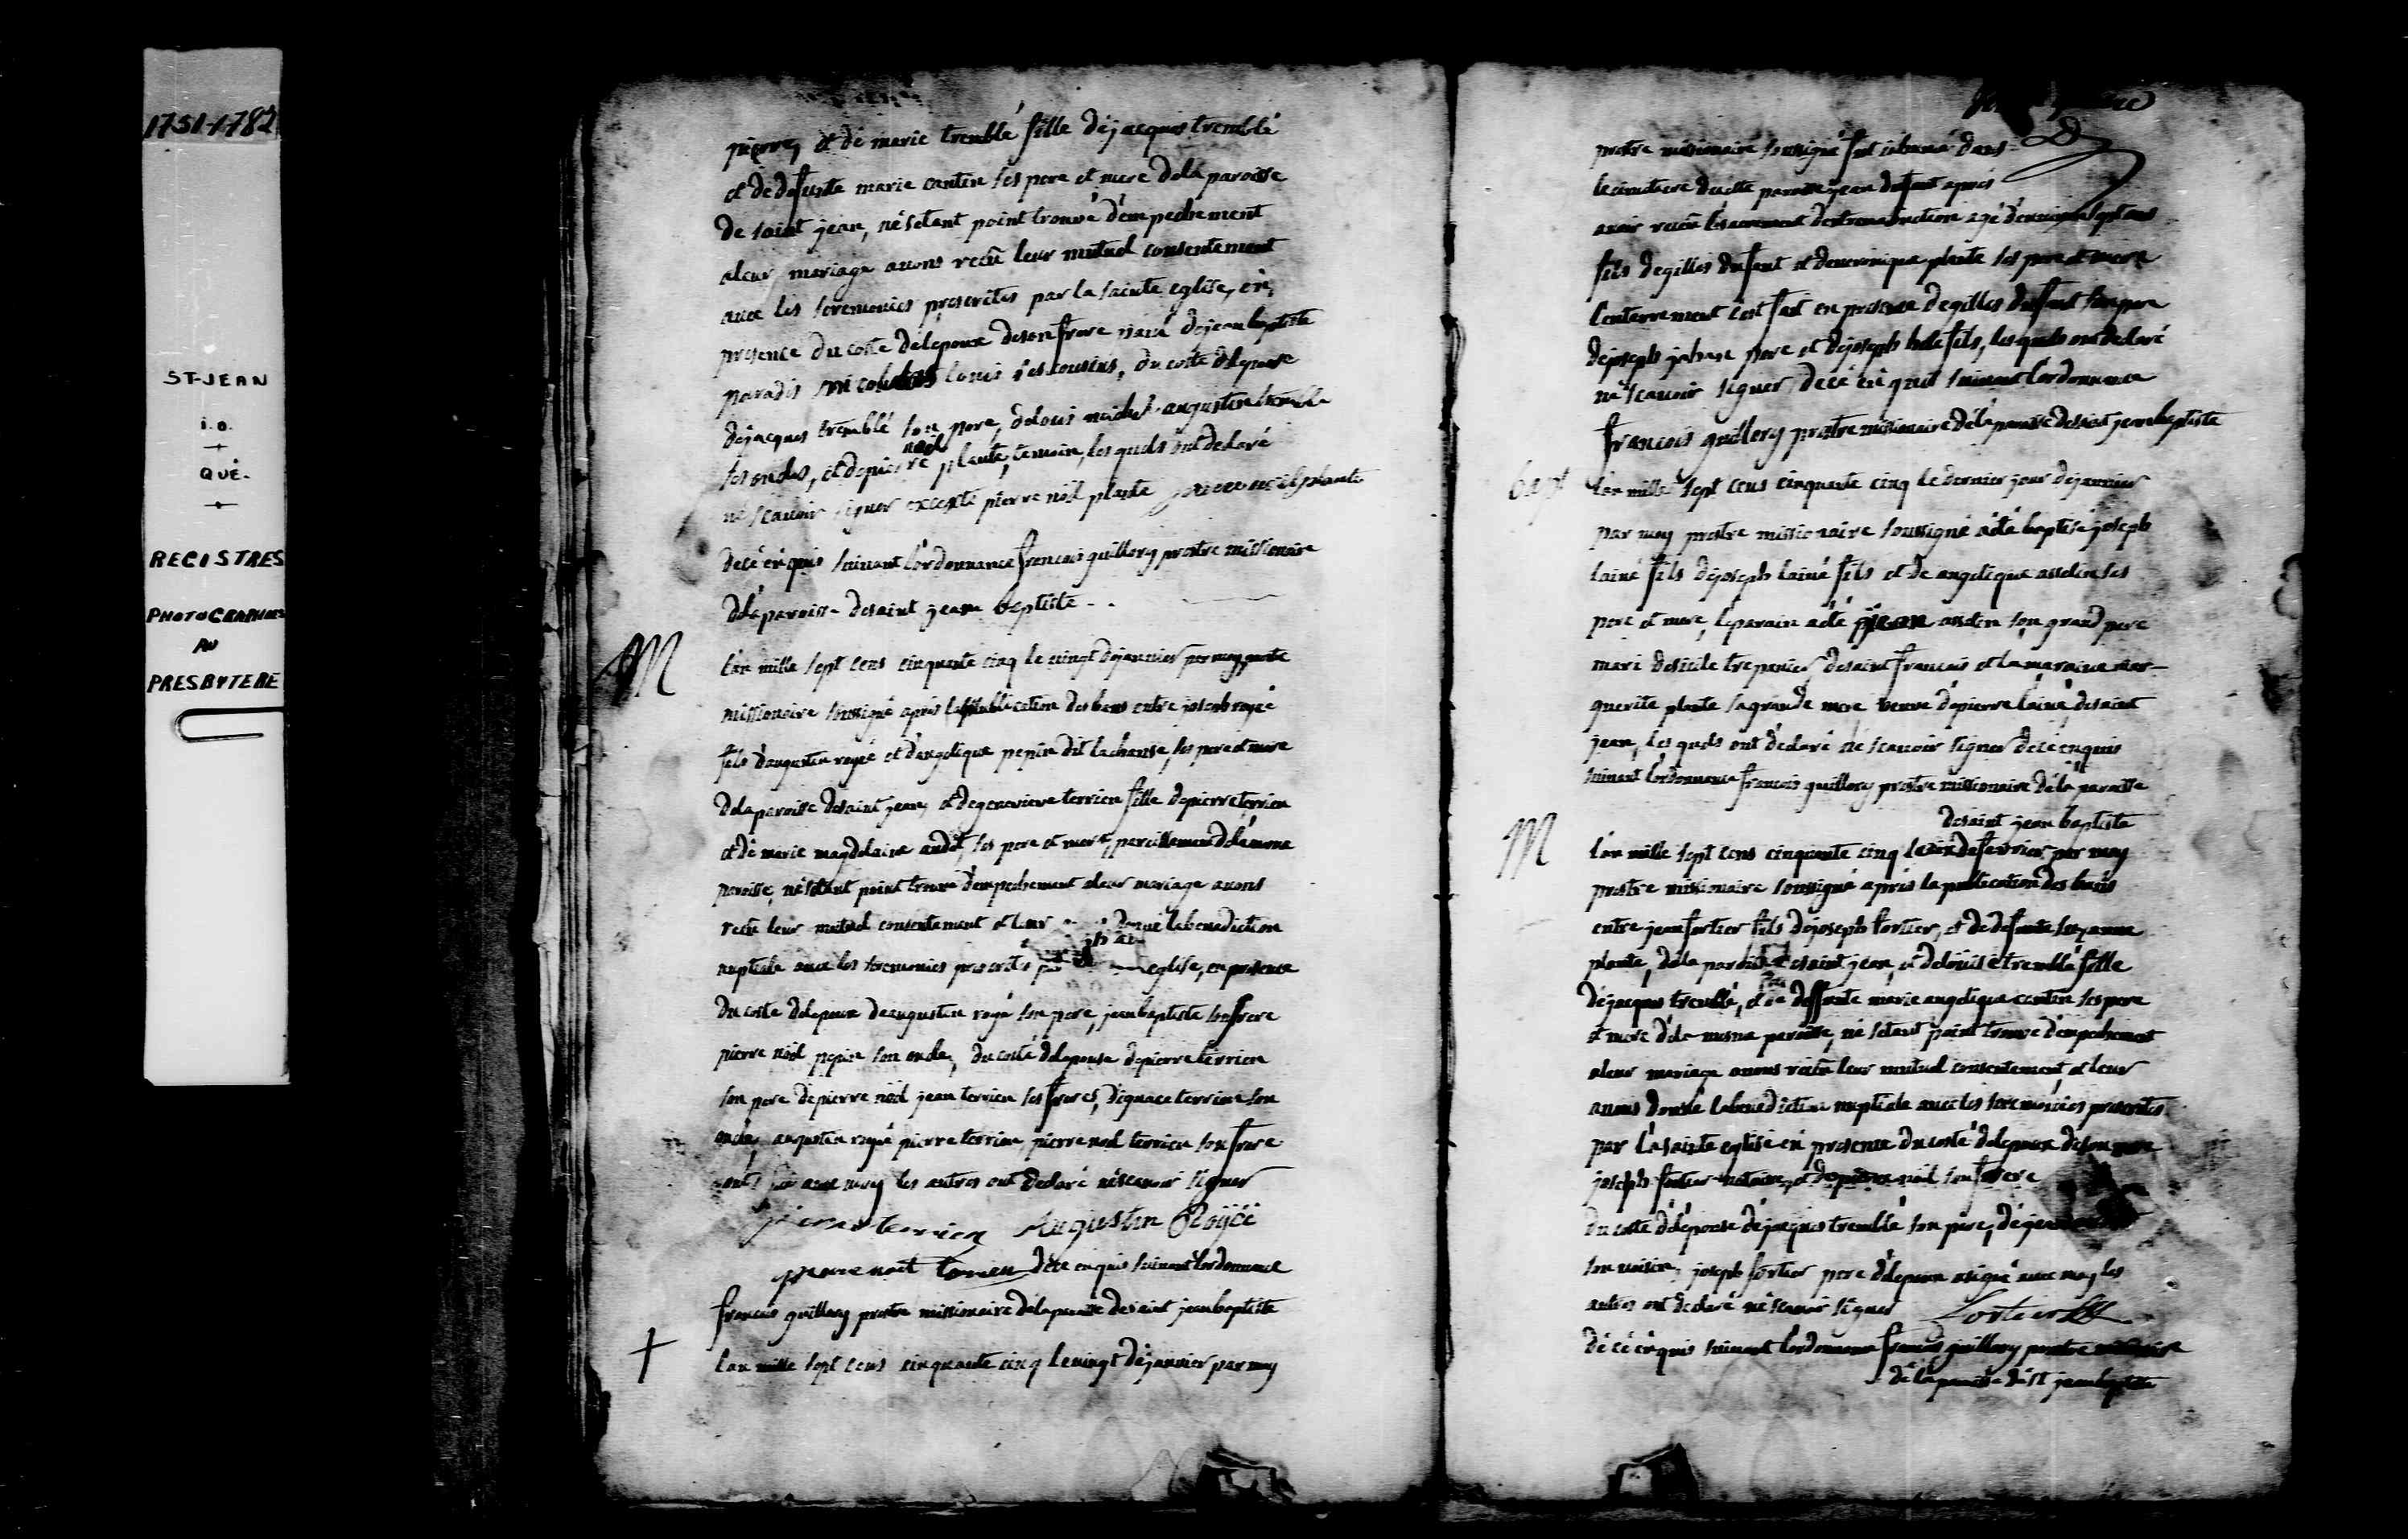 1751-1782
ST-JEAN
i.o.
QUÉ.
REGISTRES
PHOTOGRAPHIÉS
AU
PRESBYTERE
pierre, et dé marie tremblé fille déjacques tremblé
et de defunte marie cantin ses pere et mere dela paroisse
de saint jean, né sétant point trouvé d'empechement
aleur mariage avons recû leur mutuel consentement
avec les seremonies prescrites par la sainte eglise, en
presence du coste delepoux deson frere dejean baptiste
paradis louis ses cousins, du coste delepouse
dejacques tremblé son pere, delouis michel augustin tremblé
ses oncles, et depierre noel plante, temoin, les quels ont declaré
né scavoir signer excepté pierre noël plante pierre noel plante
decé enquis suivant l'ordonnance francois guillory prestre missionaire
déla paroisse desaint jean baptiste
M
l'an mille sept cens cinquante cinq le vingt dejanvier par moy prestre
missionaire soussigné aprés la publication des bans entre joseph royé
fils daugustin royé et dangelique pepin dit lachanse, ses pere et mere
dela paroisse desaint jean, et degenevieve terrien fille depierre terrien
et dé marie magdelaine audet, ses pere et mere, pareillement dela meme
paroisse, né sétant point trouvé d'empechement aleur mariage avons
recû leur mutuel consentement et leur donné la benediction
nuptiale avec les seremonies prescrites par eglise, en presence
du coste delepoux deaugustin royé son pere, jean baptiste son frere
pierre noël pepin son oncle, du costé delepouse depierre terrien
son pere depierre noël jean terrien ses freres, dignace terrien son
oncle, augustin royé pierre terrien, pierre noel terrien son frere
ont avec moy les autres ont declaré né scavoir signer
pierre terrien Augustin Royéé
pierre noel terrien déce enquis suivant l'ordonnance
francois guillory prestre missionaire delaparoisse desaint jean baptiste
†
l'an mille sept cens cinquante cinq le vingt déjanvier par moy
prestre missionaire soussigné fut inhumé dans
le cimetiere decette paroisse jean dufaut aprés
avoir recû lésacrement dextremeonction agé denviron sept ans
fils degilles dufaut et deveronique plante ses pere et mere
lenterrement sest fait en presence degilles dufaut son pere
déjoseph jahan pere et déjoseph fils, les quels ont declaré
né scavoir signer decé enquis suivant lordonnance
francois guillory prestre missionaire déla paroisse desaint jean baptiste
bapt
l'an mille sept cens cinquante cinq le dernier jour déjanvier
par moy prestre missionaire soussigné a été baptisé joseph
lainé fils déjoseph lainé fils et de angelique asselin ses
pere et mere, leparain a été jean asselin son grand pere
mari desicile trepanier desaint francois et la maraine mar-
guerite plante sa grande mere veuve dépierre lainé, desaint
jean, les quels ont déclaré né scavoir signer décé enquis
suivant l'ordonnance francois guillory prestre missionaire déla paroisse
desaint jean baptiste
M
l'an mille sept cens cinquante cinq le defevrier par moy
prestre missionaire soussigné aprés la publication des bans
entre jean fortier fils déjoseph fortier, et de defunte suzanne
plante, déla paroisse desaint jean, et delouise tremblé fille
déjacques tremblé, et de deffunte marie angelique cantin ses pere
et mere déla mesme paroisse, né sétant point trouvé dempechement
aleur mariage avons recû leur mutuel consentement, et leur
avons donné la benediction nuptiale avec les seremonies prescrites
par la sainte eglise en presence du costé delepoux déson pere
joseph fortier notaire, et depierre noël son frere
du coste delépouse déjacques tremblé son pere,
son voisin, joseph fortier pere delepoux a signé avec moy, les
autres ont declaré né scavoir signer fortier
dé cé enquis suivant l'ordonnance francois guillory prestre missionaire
dé la paroisse de st jean baptiste